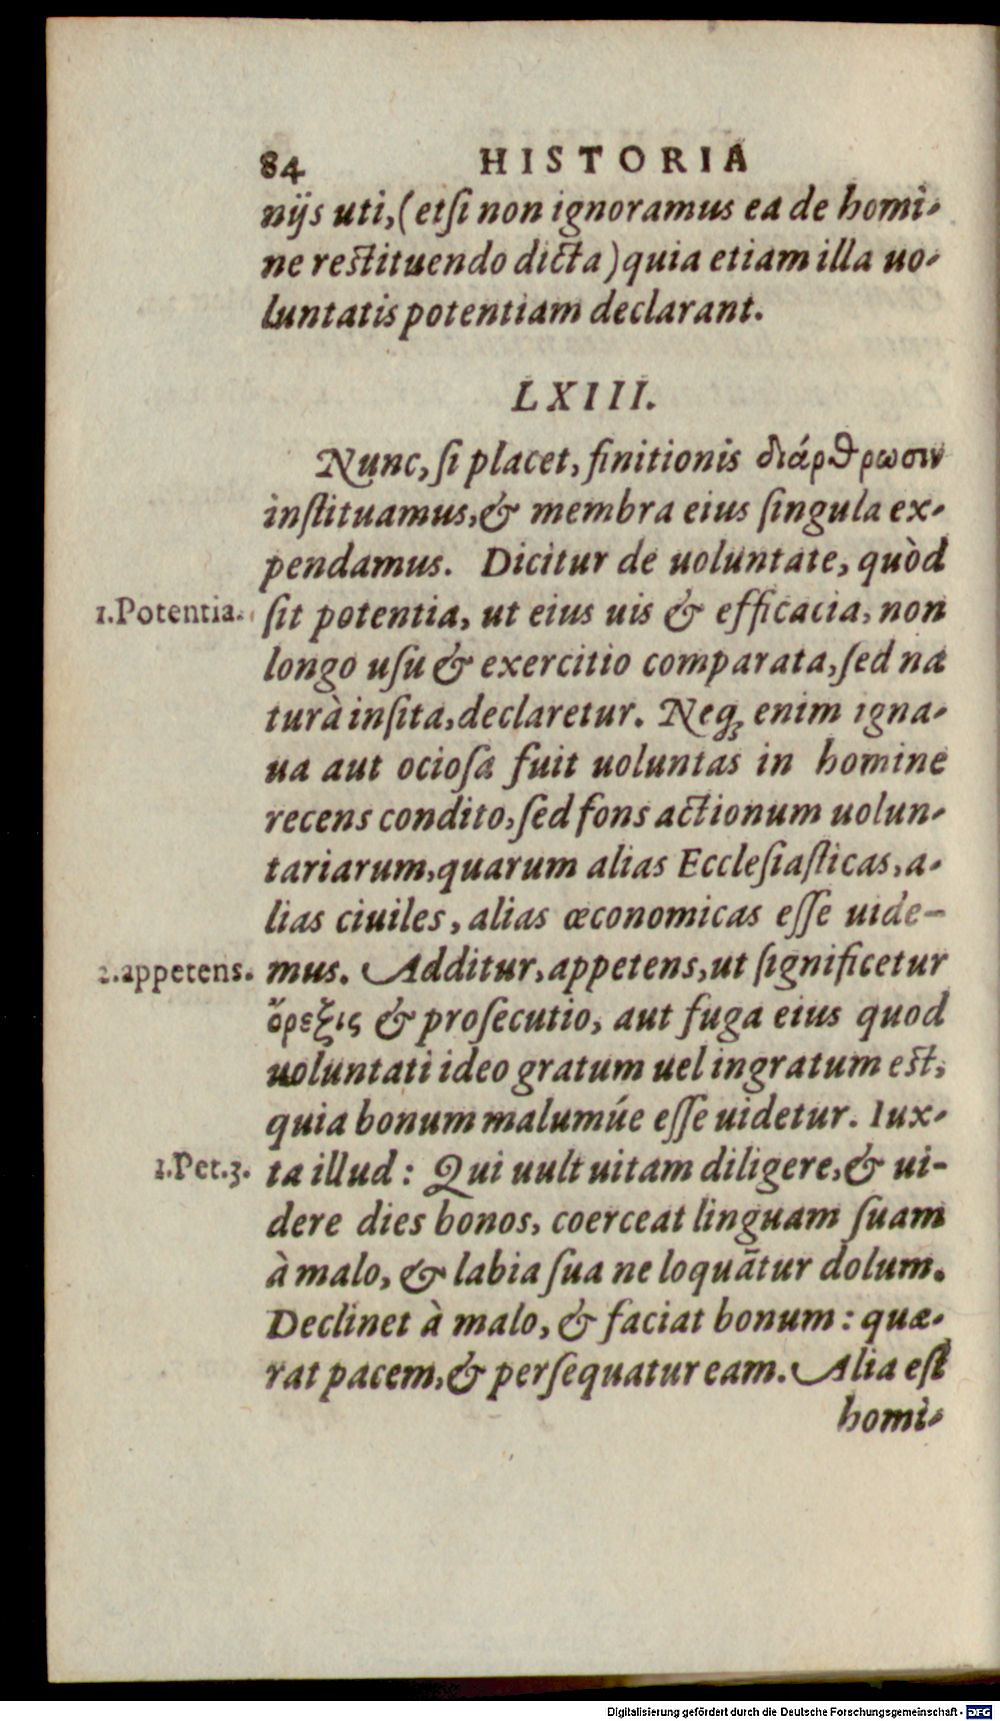 84 HISTORIA
nijs uti, (etſi non ignoramus ea de homi-
ne reſtituendo dicta) quia etiam illa uo-
luntatis potentiam declarant.
LXIII.
Nunc, ſi placet, finitionis διάρθρωσιν
inſtituamus, & membra eius ſingula ex-
pendamus. Dicitur de uoluntate, quòd
1.Potentia. ſit potentia, ut eius uis & efficacia, non
longo uſu & exercitio comparata, ſed na
turà inſita, declaretur. Neq; enim igna-
ua aut ocioſa fuit uoluntas in homine
recens condito, ſed fons actionum uolun-
tariarum, quarum alias Eccleſiaſticas, a-
lias ciuiles, alias œconomicas eſſe uide-
2.appetens. mus. Additur, appetens, ut ſignificetur
ὄρεξις & proſecutio, aut fuga eius quod
uoluntati ideo gratum uel ingratum eſt,
quia bonum malumúe eſſe uidetur. Iux-
1.Pet.3. ta illud: Qui uult uitam diligere, & ui-
dere dies bonos, coerceat linguam ſuam
à malo, & labia ſua ne loquãtur dolum.
Declinet à malo, & faciat bonum: quæ-
rat pacem, & perſequatur eam. Alia eſt
homi-
Digitalisierung gefördert durch die Deutsche Forschungsgemeinschaft - DFG